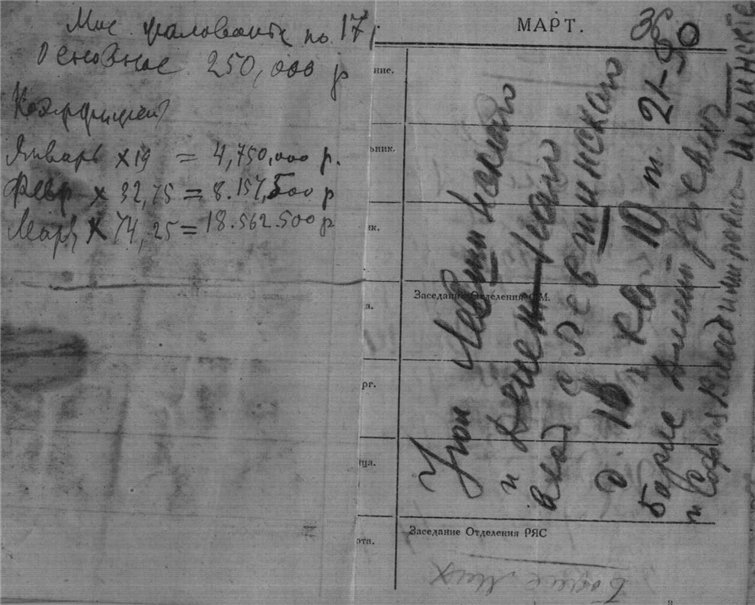 Мое жалование по 17
Основное 250,000 р
Коэффициент
Январь × 19 = 4,750,000 р.
Февр × 32,75 = 8.157,500 р
Март × 74,25 = 18.562.500 р
МАРТ.
36
ние.
ьник.
ик.
а.
Заседание Отделения О.М.
рг.
ца.
Заседание Отделения РЯС
ота.
Угол Левшинского
и Денежного
вход с Левшинского
д. 18 кв 10 т. 21-50
Борис
и София Владимировна